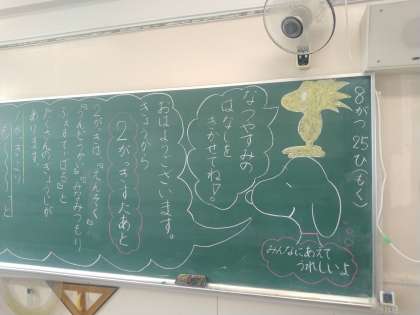 8がつ25ひ(もく)
みんなにあえて
うれしいよ
なつやすみの
はなしを
きかせてね♡!
おはようございます。
きょうから
2がっきすたあと
2がっきは、『えんそく』
『うんどうかい』『みなみつもり
ふぇすてぃばる』と
たくさんのぎょうじが
あります。